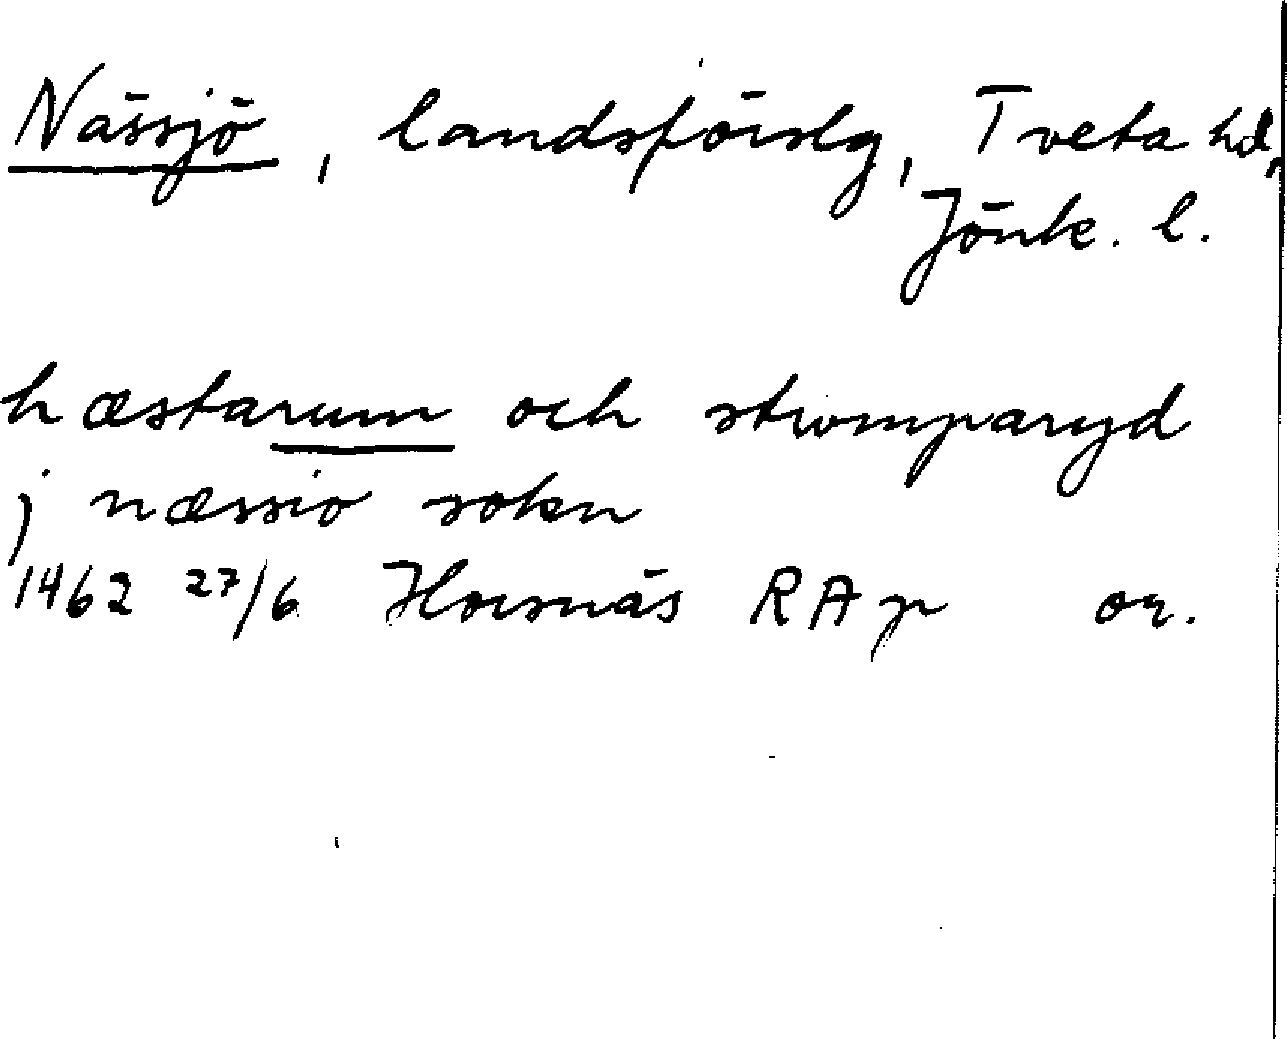 Nässjö, landsförslg, Tveta hd,
Jönk. l.
hæstarum och stromparyd
j næssio sokn
1462 27/6 Hornäs RAp or.